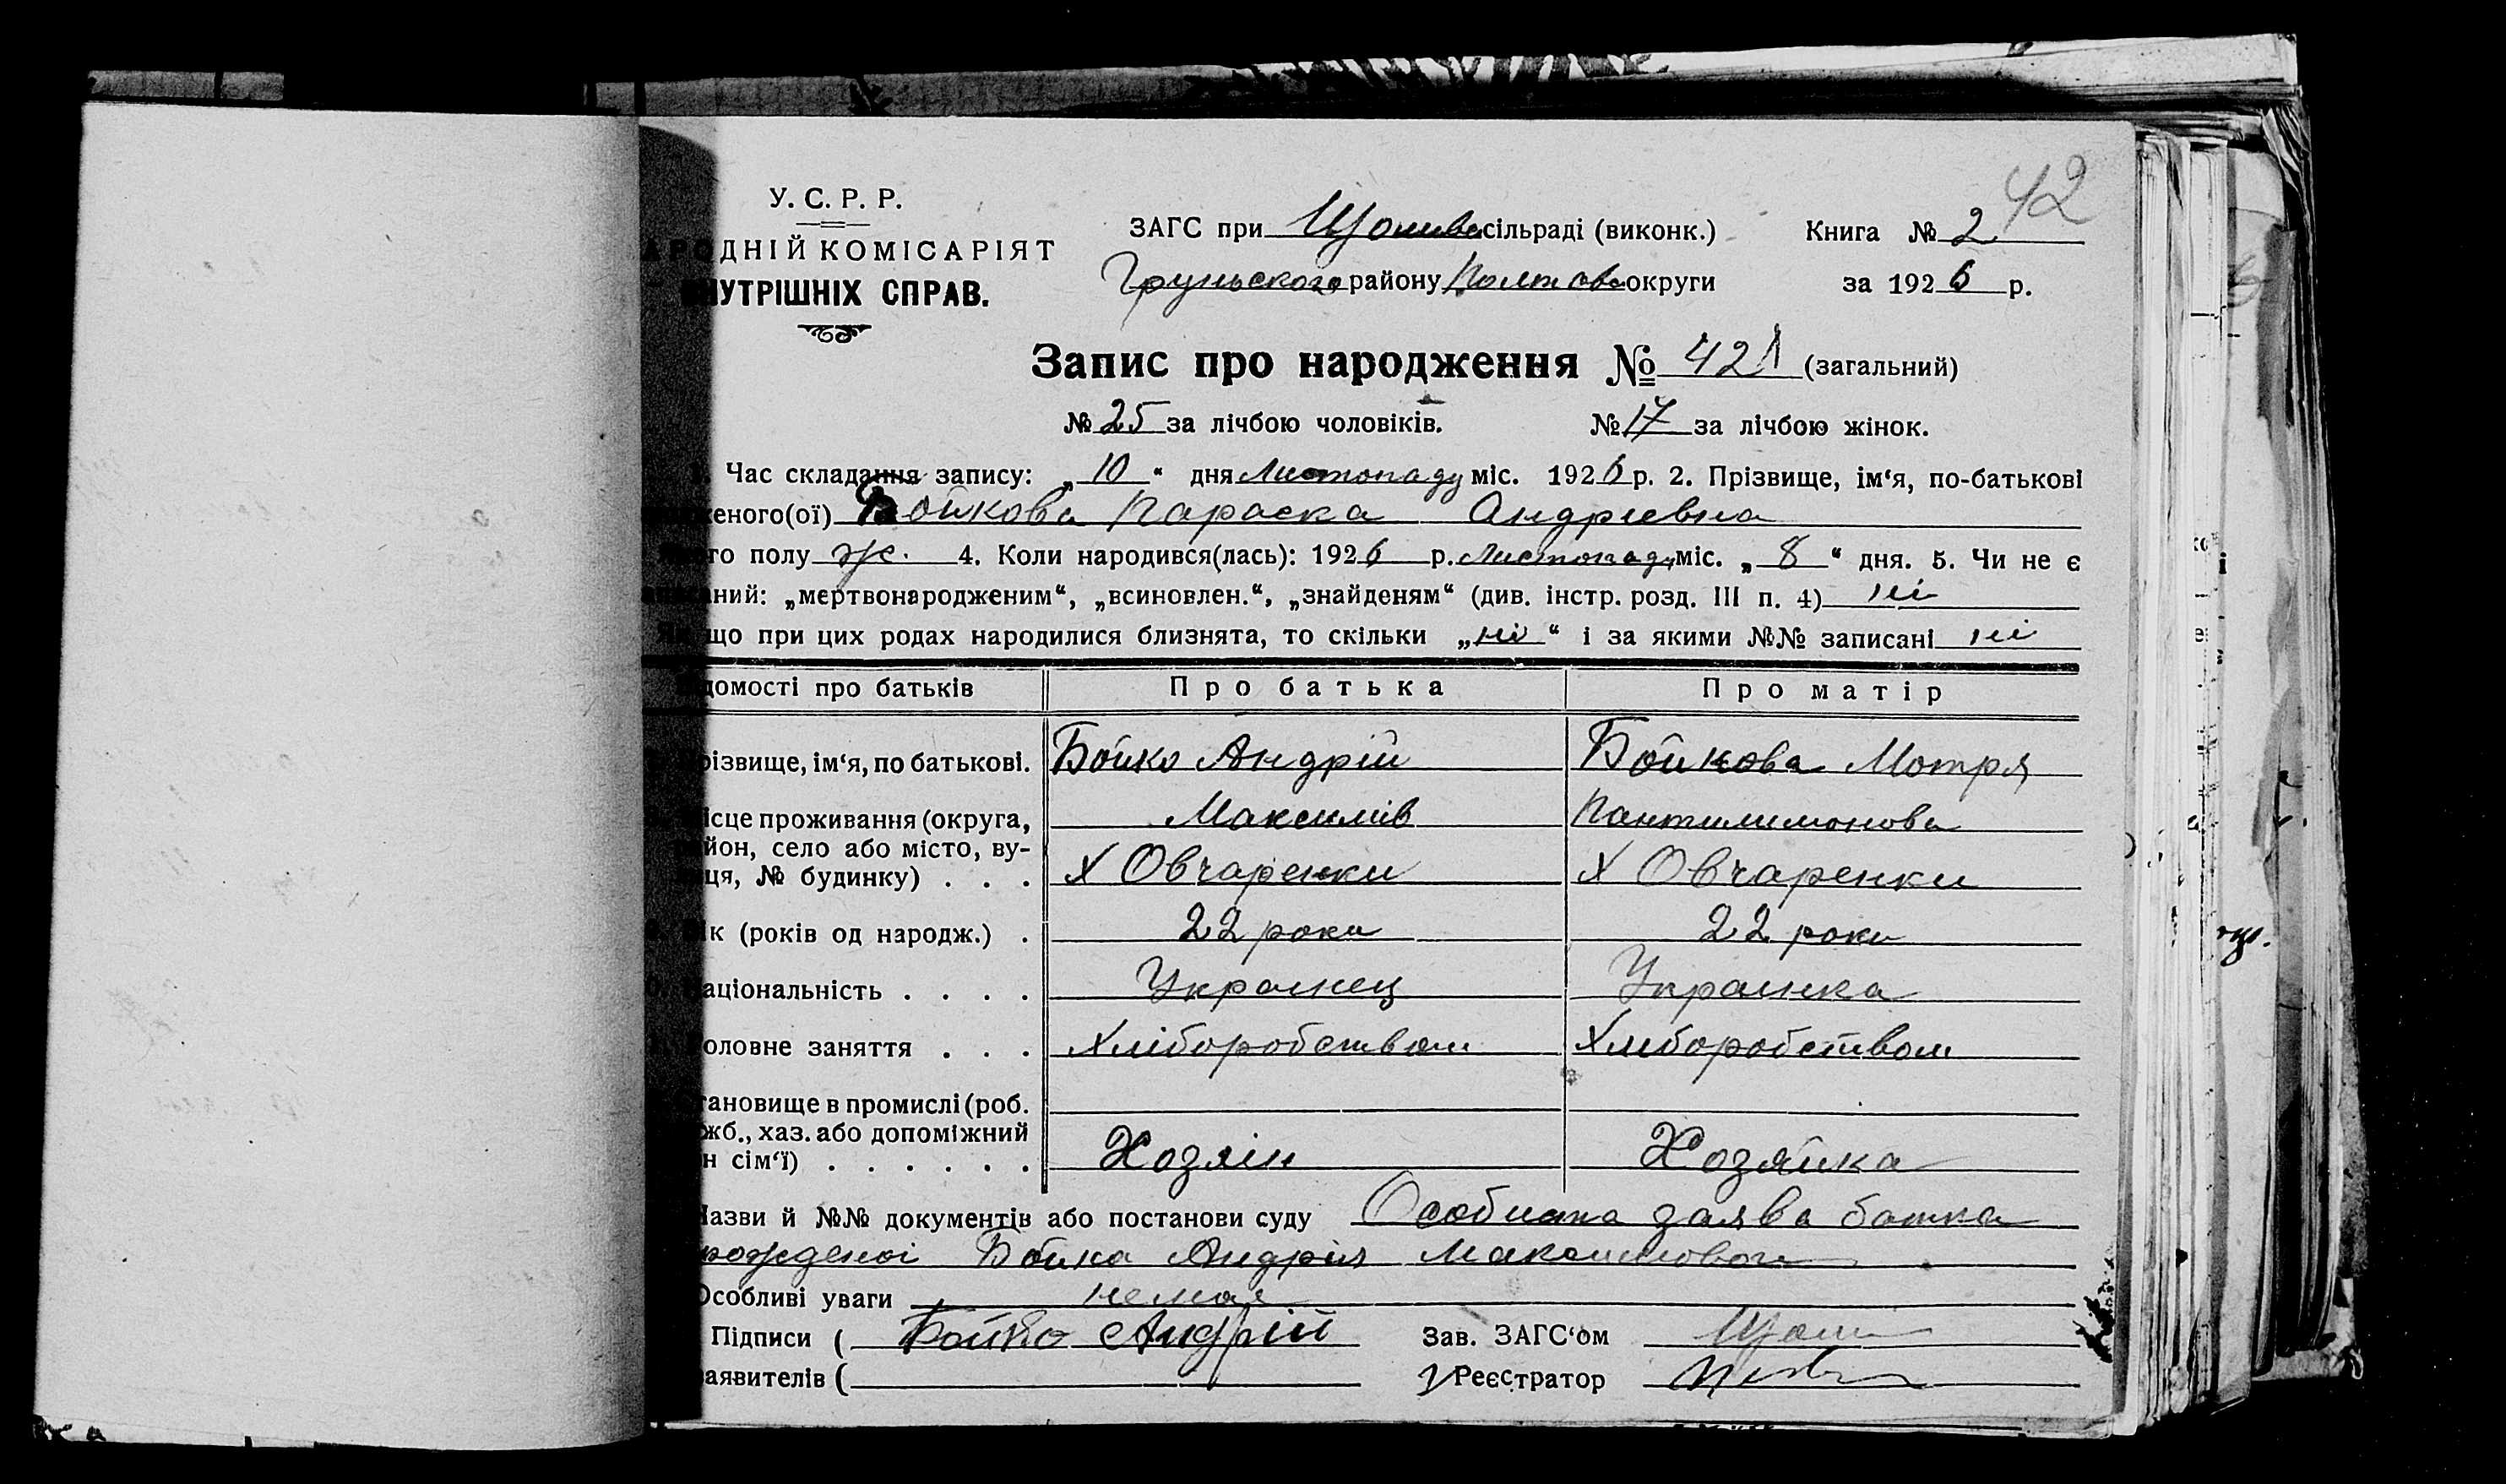 42
У. С. Р. Р.
АРОДНІЙ КОМІСАРІЯТ
НУТРІШНІХ СПРАВ.
ЗАГС при сільраді (виконк.) Книга № 2
Грунського району Полтавс округи за 1926 р.
Запис про народження № 42 (загальний)
№ 25 за лічбою чоловіків. № 17 за лічбою жінок.
Час складання запису: „10“ дня Листопаду міс. 1926 р. 2. Прізвище, ім‘я, по-батькові
еного(ої) Бойкова Параска Андріевна
го полу Ж. 4. Коли народився(лась): 1926 р. Листопаду міс. „8“ дня. 5. Чи не є
ний: „мертвонародженим“, „всиновлен.“, „знайденям“ (див. інстр. розд. III п. 4) ні
що при цих родах народилися близнята, то скільки „ні“ і за якими №№ записані ні
домості про батьків Про батька Про матір
різвище, ім‘я, по батькові. Бойко Андрій Бойкова Мотря
Максимів Пантилимонова
ісце проживання (округа,
йон, село або місто, ву-
ця, № будинку) . . . Х Овчаренки Х Овчаренки
ік (років од народж.) . 22 роки 22 роки
аціональність . . . . Украинец Украинка
оловне заняття . . . Хліборобством Хліборобством
тановище в промислі (роб.
жб., хаз. або допоміжний
н сім‘ї) . . . . . . Хозяін Хозяйка
Назви й №№ документів або постанови суду Особиста заява батька
рожденоі Бойка Андрія Максимовоч
Особливі уваги немае
Підписи ( Бойко Андрій Зав. ЗАГС‘ом
аявителів ( Реєстратор